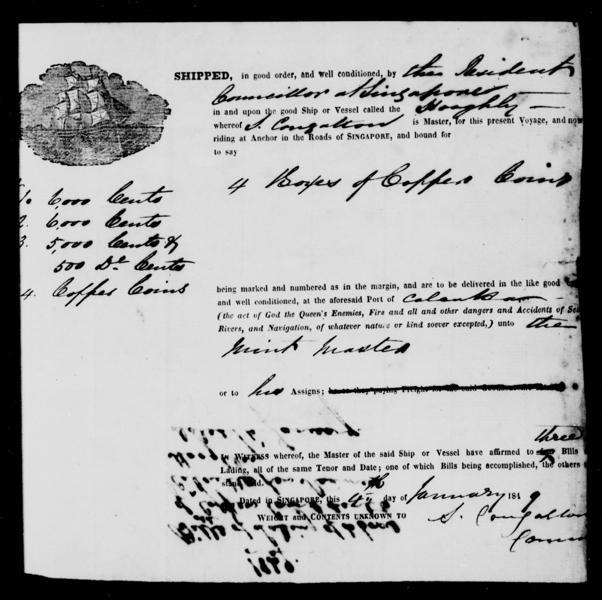 SHIPPED, in good order, and well conditioned, by the Resident
Councillor at Singapore
in and upon the good Ship or Vessel called the Hooghly
whereof S. Congalton is Master, for this present Voyage, and now
riding at Anchor in the Roads of SINGAPORE, and bound for
to say
4 Boxes of Copper Coins
1. 6,000 Cents
2. 6,000 Cents
3. 5,000 Cents &
500 Do. Cents
4. Copper Coins
being marked and numbered as in the margin, and are to be delivered in the like good
and well conditioned, at the aforesaid Port of
(the act of God the Queen's Enemies, Fire and all and other dangers and Accidents of Sea
Rivers, and Navigation, of whatever nature or kind soever excepted,) unto the
Mint Master
or to his Assigns;
In WITNESS whereof, the Master of the said Ship or Vessel have affirmed to three Bills
Lading, all of the same Tenor and Date; one of which Bills being accomplished, the others
stand void.
Dated in SINGAPORE, this day of January 1849
WEIGHT and CONTENTS UNKNOWN TO
S. Congalton